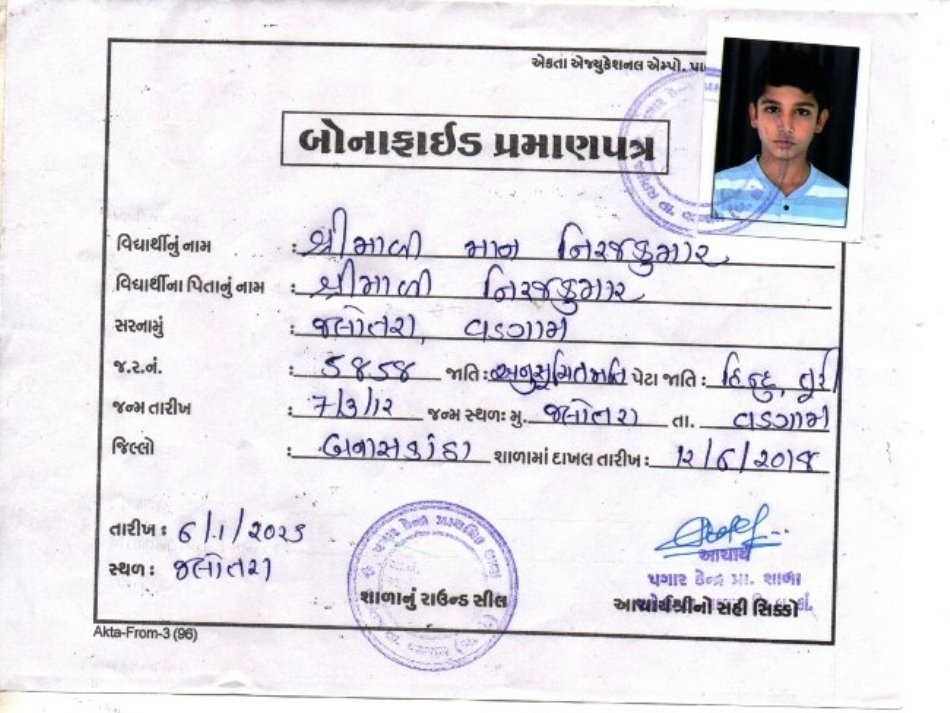 એકતા એજ્યુકેશનલ એમ્પો. પા
બોનાફાઈડ પ્રમાણપત્ર
વિદ્યાર્થીનું નામ : શ્રીમાળી માન નિરજકુમાર
વિદ્યાર્થીના પિતાનું નામ : શ્રીમાળી નિરજકુમાર
સરનામું : જલોતરા, વડગામ
જ.ર.નં. : ૫૪૫૪ જાતિ : અનુસૂચિતજાતિ પેટા જાતિ : હિન્દુ, તૂરી
જન્મ તારીખ : ૭/૩/૧૨ જન્મ સ્થળઃ મુ. જલોતરા તા. વડગામ
જિલ્લો : બનાસકાંઠા શાળામાં દાખલ તારીખ : ૧૨/૬/૨૦૧૭
તારીખ : ૬/૧/૨૦૨૩
સ્થળ : જલોતરા
આચાર્ય
પગાર કેન્દ્ર પ્રા. શાળા
શાળાનું રાઉન્ડ સીલ આચાર્યશ્રીનો સહી સિક્કો
Akta-From-3 (96)